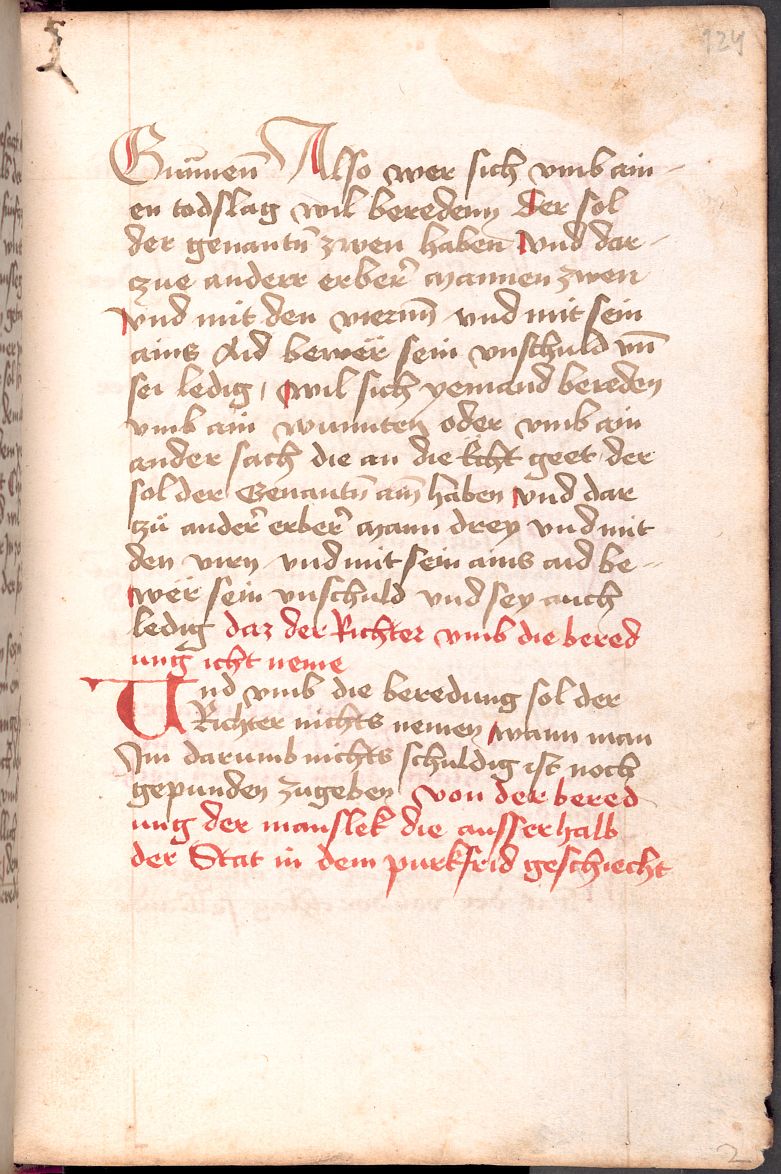 124
Gunnen Also wer sich vmb ain-
en todslag wil bereden der sol
der genantn̄ zwen haben vnd dar-
zue anderr erber̄ mannen zwen
vnd mit den viernn̄ vnd mit sein
ains Aid bewër sein vnschuld vn̄
sei ledig / wil sich yemand bereden
vmb ain wunnten oder vmb ain
ander sach die an die Echt geet der
sol der Genantn̄ ain haben vnd dar
zü ander̄ erber̄ mann drey vnd mit
den virn vnd mit sein ains aid be-
wër sein vnschuld vnd sey auch
ledig daz der Richter vmb die bered
ung icht neme
Und vmb die beredung sol der
Richter nichts nemen wann man
Im darumb nichts schuldig ist noch
gepunden zugeben von der bered
ung der manslek die ausserhalb
der Stat in dem purkfrid geschiecht
2